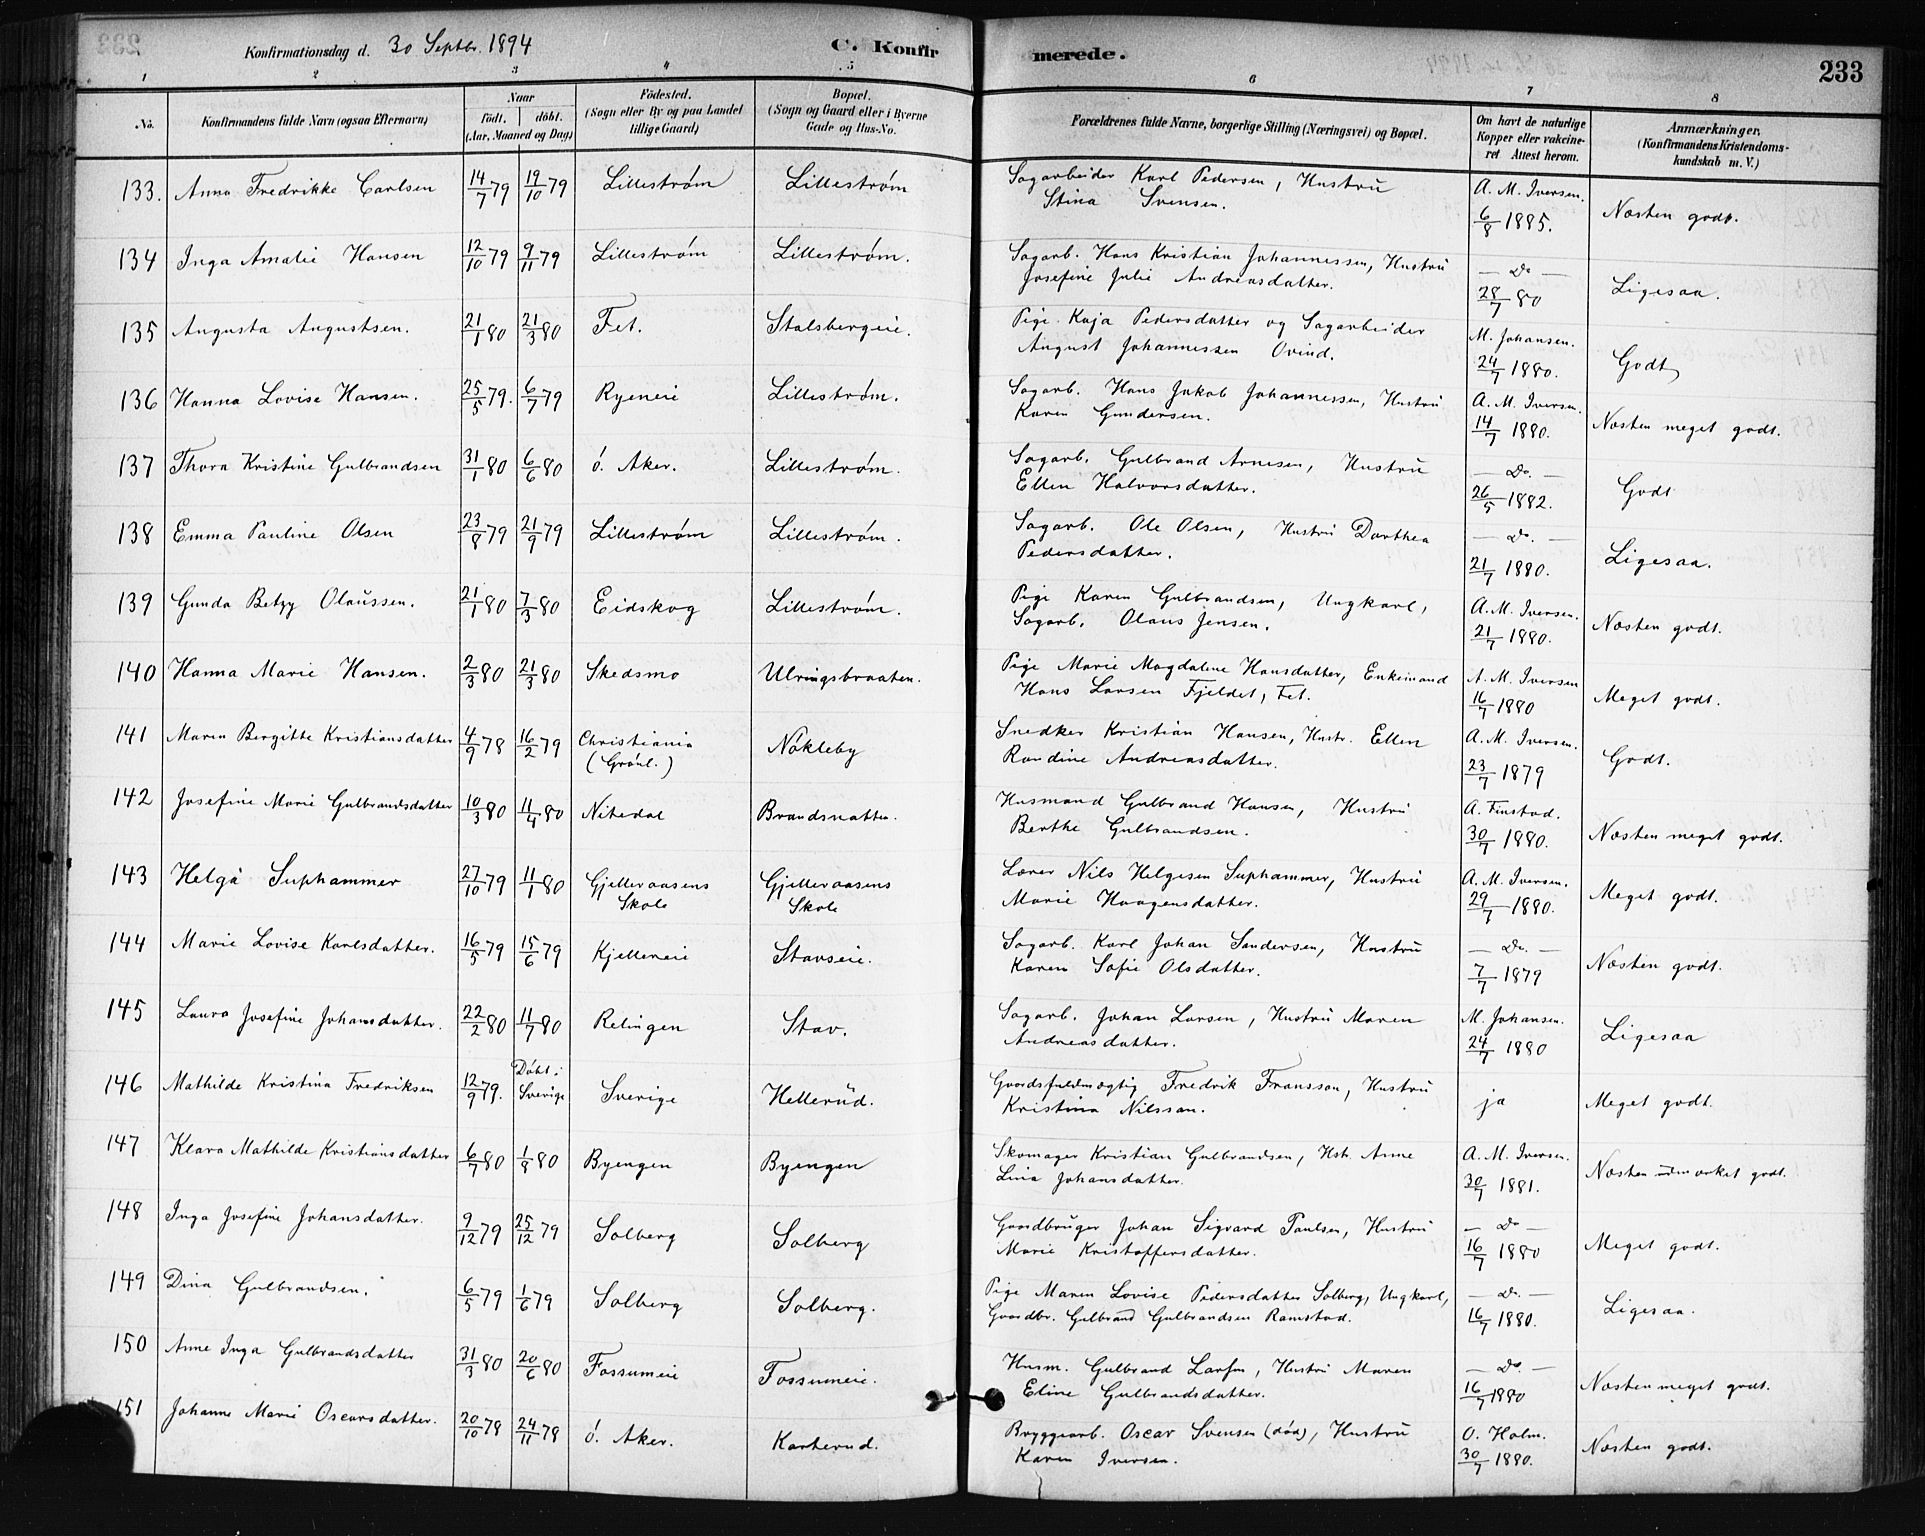 Konfirmationsdag d. 30 Septbr. 1894
C. Konfirmerede.
233
1 2 3 4 5 6 7 8
No. Konfirmandens fulde Navn (ogsaa Efternavn) Naar født. døbt. (Aar, Maaned og Dag) Fødested. (Sogn eller By og paa Landet tillige Gaard) Bopæl. (Sogn og Gaard eller i Byerne Gade og Hus-No. Forældrenes fulde Navne, borgerlige Stilling (Næringsvei) og Bopæl. Om havt de naturlige Kopper eller vakcineret Attest herom. Anmærkninger. (Konfirmandens Kristendomskundskab m. V.)
133. Anna Fredrikke Carlsen 14/7 79 19/10 79 Lillestrøm Lillestrøm Sagarbeider Karl Pedersen, Hustru Stina Svensen. A. M. Iversen. 6/8 1885. Næsten godt.
134 Inga Amalie Hansen 12/10 79 9/11 79 Lillestrøm Lillestrøm. Sagarb. Hans Kristian Johannessen, Hustru Josefine Julie Andreasdatter. — Do — 28/7 80 Ligesaa.
135 Angusta Angustsen. 21/1 80 21/3 80 Fet. Stalsbergeie. Pige Kaja Pedersdatter og Sagarbeider August Johannessen Ovind. M. Johansen. 24/7 1880. Godt
136 Hanna Lovise Hansen. 25/5 79. 6/7 79 Ryeneie Lillestrøm. Sagarb. Hans Jakob Johannessen, Hustru Karen Gundersen. A. M. Iversen. 14/7 1880. Næsten meget godt.
137 Thora Kristine Gulbrandsen 31/1 80 6/6 80 ø. Aker. Lillestrøm. Sagarb. Gulbrand Arnesen, Hustru Ellen Halvorsdatter. — Do. — 26/5 1882. Godt
138 Emma Pauline Olsen 23/8 79 21/9 79 Lillestrøm Lillestrøm. Sagarb. Ole Olsen, Hustru Dorthea Pedersdatter. — Do. — 21/7 1880. Ligesaa.
139 Gunda Betzy Olaussen. 21/1 80 7/3 80 Eidskog Lillestrøm. Pige Karen Gulbrandsen, Ungkarl, Sagarb. Olaus Jensen. A. M. Iversen. 21/7 1880. Næsten godt.
140 Hanna Marie Hansen. 2/3 80 21/3 80 Skedsmo Ulringsbraaten. Pige Marie Magdalene Hansdatter, Enkemand Hans Larsen Fjeldet, Fet. A. M. Iversen 16/7 1880 Meget godt.
141 Maren Bergitte Kristiansdatter 4/9 78 16/2 79 Christiania (Grønl.) Nøkleby Snedker Kristian Hansen, Hustr. Ellen Randine Andreasdatter. A. M. Iversen. 23/7 1879 Godt.
142 Josefine Marie Gulbrandsdatter 10/3 80 11/4 80 Nitedal Brandsnatten. Husmand Gulbrand Hansen, Hustru Berthe Gulbrandsen. A. Finstad. 30/7 1880. Næsten meget godt.
143 Helga Suphammer 27/10 79 11/1 80 Gjelleraasens Skole Gjelleraasens Skole Lærer Nils Helgesen Suphammer, Hustru Marie Haagensdatter. A. M. Iversen. 29/7 1880. Meget godt.
144 Marie Lovise Karlsdatter. 16/5 79 15/6 79 Kjellereie Stavseie. Sagarb. Karl Johan Sandersen, Hustru Karen Sofie Olsdatter. — Do. — 7/7 1879 Næsten godt.
145 Laura Josefine Johansdatter. 22/2 80 11/7 80 Relingen Stav. Sagarb. Johan Larsen, Hustru Maren Andreasdatter. M. Johansen. 24/7 1880 Ligesaa
146 Mathilde Kristina Fredriksen 12/9 79. Døbt i Sverige Sverige Hellerud. Gaardsfuldmægtig Fredrik Fransson, Hustru Kristina Nilsson. ja Meget godt.
147 Klara Mathilde Kristiansdatter 6/7 80 1/8 80 Byengen Byengen Skomager Kristian Gulbrandsen, Hst. Anne Lina Johansdatter. A. M. Iversen. 30/7 1881. Næsten udmærket godt.
148 Inga Josefine Johansdatter. 9/12 79 25/12 79 Solberg Solberg Gaardbruger Johan Sigvard Paulsen, Hustru Marie Kristoffersdatter. — Do — 16/7 1880 Meget godt.
149 Dina Gulbrandsen. 6/5 79 1/6 79 Solberg Solberg. Pige Maren Lovise Pedersdatter Solberg, Ungkarl, Gaardbr. Gulbrand Gulbrandsen Ramstad. — Do. — 16/7 1880. Ligesaa.
150 Anne Inga Gulbrandsdatter 31/3 80 20/6 80 Fossumeie Fossumeie. Husm. Gulbrand Larsen, Hustru Maren Eline Gulbrandsdatter. — Do — 16/7 1880 Næsten meget godt.
151 Johanne Marie Oscarsdatter. 20/10 78 24/11 78 ø. Aker. Karterud. Bryggearb. Oscar Svensen (død), Hustru Karen Iversen. O. Holm. 30/7 1880. Næsten godt.